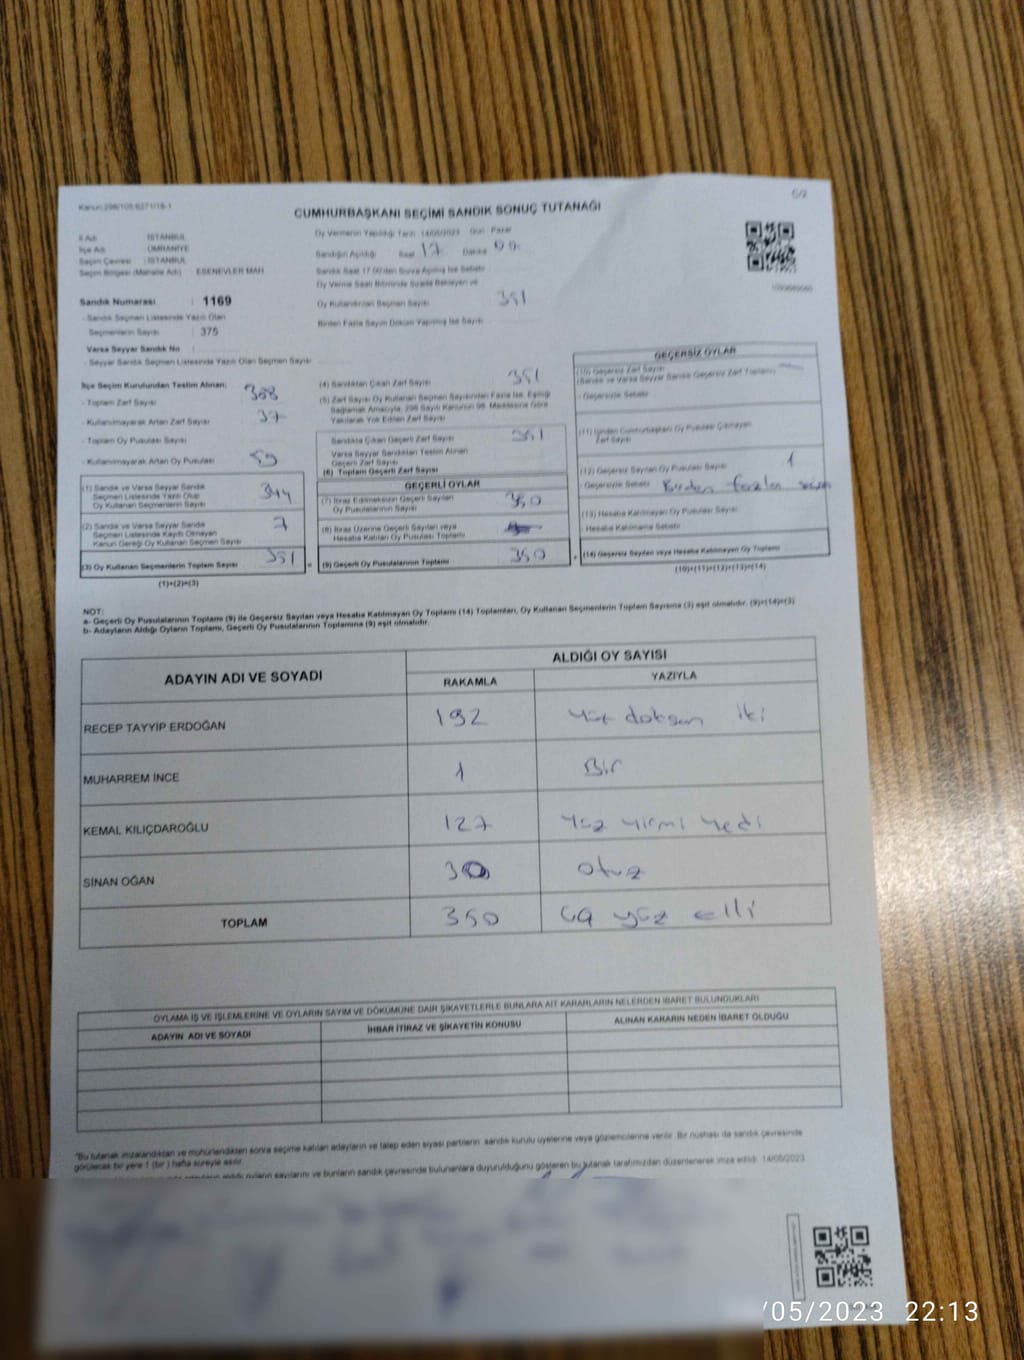 Kanun:298/105,6271/18-1
C/2
CUMHURBAŞKANI SEÇİMİ SANDIK SONUÇ TUTANAĞI
İl Adı : İSTANBUL
İlçe Adı : ÜMRANİYE
Seçim Çevresi : İSTANBUL
Seçim Bölgesi (Mahalle Adı) : ESENEVLER MAH
Sandık Numarası : 1169
- Sandık Seçmen Listesinde Yazılı Olan
Seçmenlerin Sayısı : 375
Varsa Seyyar Sandık No :
- Seyyar Sandık Seçmen Listesinde Yazılı Olan Seçmen Sayısı :
Oy Vermenin Yapıldığı Tarih 14/05/2023 Gün Pazar
Sandığın Açıldığı Saat 17 Dakika 00
Sandık Saat 17.00'den Sonra Açılmış İse Sebebi
Oy Verme Saati Bitiminde Sırada Bekleyen ve
Oy Kullandırılan Seçmen Sayısı 351
Birden Fazla Sayım Döküm Yapılmış İse Sayısı
İlçe Seçim Kurulundan Teslim Alınan;
- Toplam Zarf Sayısı 388
- Kullanılmayarak Artan Zarf Sayısı 37
- Toplam Oy Pusulası Sayısı
- Kullanılmayarak Artan Oy Pusulası
(1) Sandık ve Varsa Seyyar Sandık
Seçmen Listesinde Yazılı Olup
Oy Kullanan Seçmenlerin Sayısı 344
(2) Sandık ve Varsa Seyyar Sandık
Seçmen Listesinde Kayıtlı Olmayan
Kanun Gereği Oy Kullanan Seçmen Sayısı 7
(3) Oy Kullanan Seçmenlerin Toplam Sayısı 351
(1)+(2)=(3)
(4) Sandıktan Çıkan Zarf Sayısı 351
(5) Zarf Sayısı Oy Kullanan Seçmen Sayısından Fazla İse, Eşitliği
Sağlamak Amacıyla, 298 Sayılı Kanunun 98. Maddesine Göre
Yakılarak Yok Edilen Zarf Sayısı
Sandıkta Çıkan Geçerli Zarf Sayısı 351
Varsa Seyyar Sandıktan Teslim Alınan
Geçerli Zarf Sayısı
(6) Toplam Geçerli Zarf Sayısı
GEÇERLİ OYLAR
(7) İtiraz Edilmeksizin Geçerli Sayılan
Oy Pusulalarının Sayısı 350
(8) İtiraz Üzerine Geçerli Sayılan veya
Hesaba Katılan Oy Pusulası Toplamı
(9) Geçerli Oy Pusulalarının Toplamı 350
GEÇERSİZ OYLAR
(10) Geçersiz Zarf Sayısı
(Sandık ve Varsa Seyyar Sandık Geçersiz Zarf Toplamı)
- Geçersizlik Sebebi
(11) İçinden Cumhurbaşkanı Oy Pusulası Çıkmayan
Zarf Sayısı
(12) Geçersiz Sayılan Oy Pusulası Sayısı 1
- Geçersizlik Sebebi Birden fazla
(13) Hesaba Katılmayan Oy Pusulası Sayısı
- Hesaba Katılmama Sebebi
(14) Geçersiz Sayılan veya Hesaba Katılmayan Oy Toplamı
(10)+(11)+(12)+(13)=(14)
NOT:
a- Geçerli Oy Pusulalarının Toplamı (9) ile Geçersiz Sayılan veya Hesaba Katılmayan Oy Toplamı (14) Toplamları, Oy Kullanan Seçmenlerin Toplam Sayısına (3) eşit olmalıdır. (9)+(14)=(3)
b- Adayların Aldığı Oyların Toplamı, Geçerli Oy Pusulalarının Toplamına (9) eşit olmalıdır.
ADAYIN ADI VE SOYADI
ALDIĞI OY SAYISI
RAKAMLA YAZIYLA
RECEP TAYYİP ERDOĞAN 192 Yüz doksan iki
MUHARREM İNCE 1 Bir
KEMAL KILIÇDAROĞLU 127 Yüz yirmi yedi
SİNAN OĞAN 30 otuz
TOPLAM 350 üç yüz elli
OYLAMA İŞ VE İŞLEMLERİNE VE OYLARIN SAYIM VE DÖKÜMÜNE DAİR ŞİKAYETLERLE BUNLARA AİT KARARLARIN NELERDEN İBARET BULUNDUKLARI
ADAYIN ADI VE SOYADI İHBAR İTİRAZ VE ŞİKAYETİN KONUSU ALINAN KARARIN NEDEN İBARET OLDUĞU
"Bu tutanak imzalandıktan ve mühürlendikten sonra seçime katılan adayların ve talep eden siyasi partilerin sandık kurulu üyelerine veya gözlemcilerine verilir. Bir nüshası da sandık çevresinde
görülecek bir yere 1 (bir) hafta süreyle asılır.
adayların aldığı oyların sayılarını ve bunların sandık çevresinde bulunanlara duyurulduğunu gösteren bu tutanak tarafımızdan düzenlenerek imza edildi. 14/05/2023
/05/2023 22:13